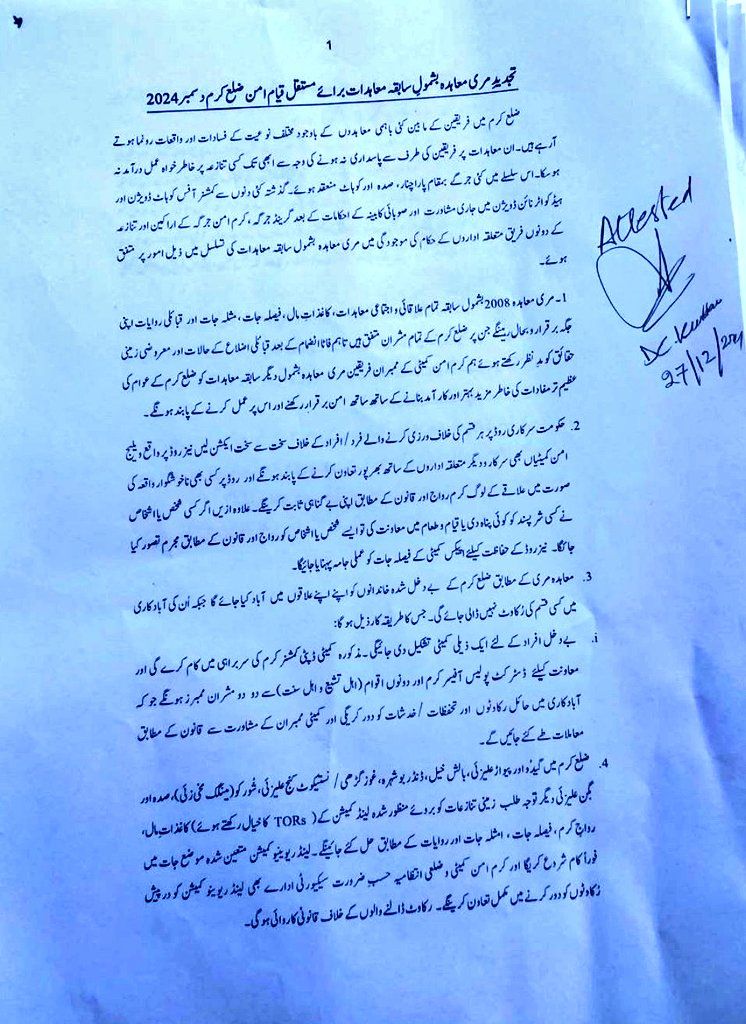 1
تجدیدِ مری معاہدہ بشمول سابقہ معاہدات برائے مستقل قیام امن ضلع کرم دسمبر 2024
ضلع کرم میں فریقین کے مابین کئی باہمی معاہدوں کے باوجود مختلف نوعیت کے فسادات اور واقعات رونما ہوتے
آرہے ہیں۔ ان معاہدات پر فریقین کی طرف سے پاسداری نہ ہونے کی وجہ سے ابھی تک کسی تنازعہ پر خاطر خواہ عمل درآمد نہ
ہوسکا۔ اس سلسلے میں کئی جرگے بمقام پاراچنار، صدہ اور کوہاٹ منعقد ہوئے۔ گذشتہ کئی دنوں سے کمشنر آفس کوہاٹ ڈویژن اور
ہیڈ کواٹر نائن ڈویژن میں جاری مشاورت اور صوبائی کابینہ کے احکامات کے بعد گرینڈ جرگہ، کرم امن جرگہ کے اراکین اور تنازعہ
کے دونوں فریق متعلقہ اداروں کے حکام کی موجودگی میں مری معاہدہ بشمول سابقہ معاہدات کی تسلسل میں ذیل امور پر متفق
ہوئے۔
1۔ مری معاہدہ 2008 بشمول سابقہ تمام علاقائی و اجتماعی معاہدات، کاغذات مال، فیصلہ جات، مثلہ جات اور قبائلی روایات اپنی
جگہ برقرار و بحال رہینگے جن پر ضلع کرم کے تمام مشران متفق ہیں تاہم فاٹا انضمام کے بعد قبائلی اضلاع کے حالات اور معروضی زمینی
حقائق کو مدِ نظر رکھتے ہوئے ہم کرم امن کمیٹی کے ممبران فریقین مری معاہدہ بشمول دیگر سابقہ معاہدات کو ضلع کرم کے عوام کی
عظیم تر مفادات کی خاطر مزید بہتر اور کار آمد بنانے کے ساتھ ساتھ امن برقرار رکھنے اور اس پر عمل کرنے کے پابند ہونگے۔
2. حکومت سرکاری روڈ پر ہر قسم کی خلاف ورزی کرنے والے فرد / افراد کے خلاف سخت سے سخت ایکشن لیں نیز روڈ پر واقع ویلیج
امن کمیٹیاں بھی سرکار و دیگر متعلقہ اداروں کے ساتھ بھرپور تعاون کرنے کے پابند ہونگے اور روڈ پر کسی بھی ناخوشگوار واقعہ کی
صورت میں علاقے کے لوگ کرم رواج اور قانون کے مطابق اپنی بے گناہی ثابت کرینگے۔ علاوہ ازیں اگر کسی شخص یا اشخاص
نے کسی شرپسند کو کوئی پناہ دی یا قیام و طعام میں معاونت کی تو ایسے شخص یا اشخاص کو رواج اور قانون کے مطابق مجرم تصور کیا
جائگا۔ نیز روڈ کے حفاظت کیلئے اپیکس کمیٹی کے فیصلہ جات کو عملی جامہ پہنایا جائیگا۔
3. معاہدہ مری کے مطابق ضلع کرم کے بے دخل شدہ خاندانوں کو اپنے اپنے علاقوں میں آباد کیا جائے گا جبکہ اُن کی آبادکاری
میں کسی قسم کی رُکاوٹ نہیں ڈالی جائے گی۔ جس کا طریقہ کار ذیل ہوگا:
i. بے دخل افراد کے لئے ایک ذیلی کمیٹی تشکیل دی جائیگی۔ مذکورہ کمیٹی ڈپٹی کمشنر کرم کی سربراہی میں کام کرے گی اور
معاونت کیلئے ڈسٹرکٹ پولیس آفیسر کرم اور دونوں اقوام (اہل تشیع و اہل سنت) سے دو دو مشران ممبرز ہونگے جو کہ
آبادکاری میں حائل رکاوٹوں اور تحفظات / خدشات کو دور کریگی اور کمیٹی ممبران کے مشاورت سے قانون کے مطابق
معاملات طے کئے جائیں گے۔
4. ضلع کرم میں گیدو اور پیواڑ علیزئی، بالش خیل، ڈنڈر بوشہرہ، غوز گڑھی / نستیکوٹ کنج علیزئی، شورکو (مینگک مخی زئی)، صدہ اور
بگن علیزئی دیگر توجہ طلب زمینی تنازعات کو بروئے منظور شدہ لینڈ کمیشن کے (TORs کا خیال رکھتے ہوئے) کاغذات مال،
رواجِ کرم، فیصلہ جات، امثلہ جات اور روایات کے مطابق حل کئے جائینگے۔ لینڈ ریوینیو کمیشن متعین شدہ موضع جات میں
فوراً کام شروع کریگا اور کرم امن کمیٹی و ضلعی انتظامیہ حسبِ ضرورت سیکیورٹی ادارے بھی لینڈ ریوینیو کمیشن کو درپیش
رُکاوٹوں کو دور کرنے میں مکمل تعاون کرینگے۔ رکاوٹ ڈالنے والوں کے خلاف قانونی کاروائی ہوگی۔
Attested
DC Kurram
27/12/204